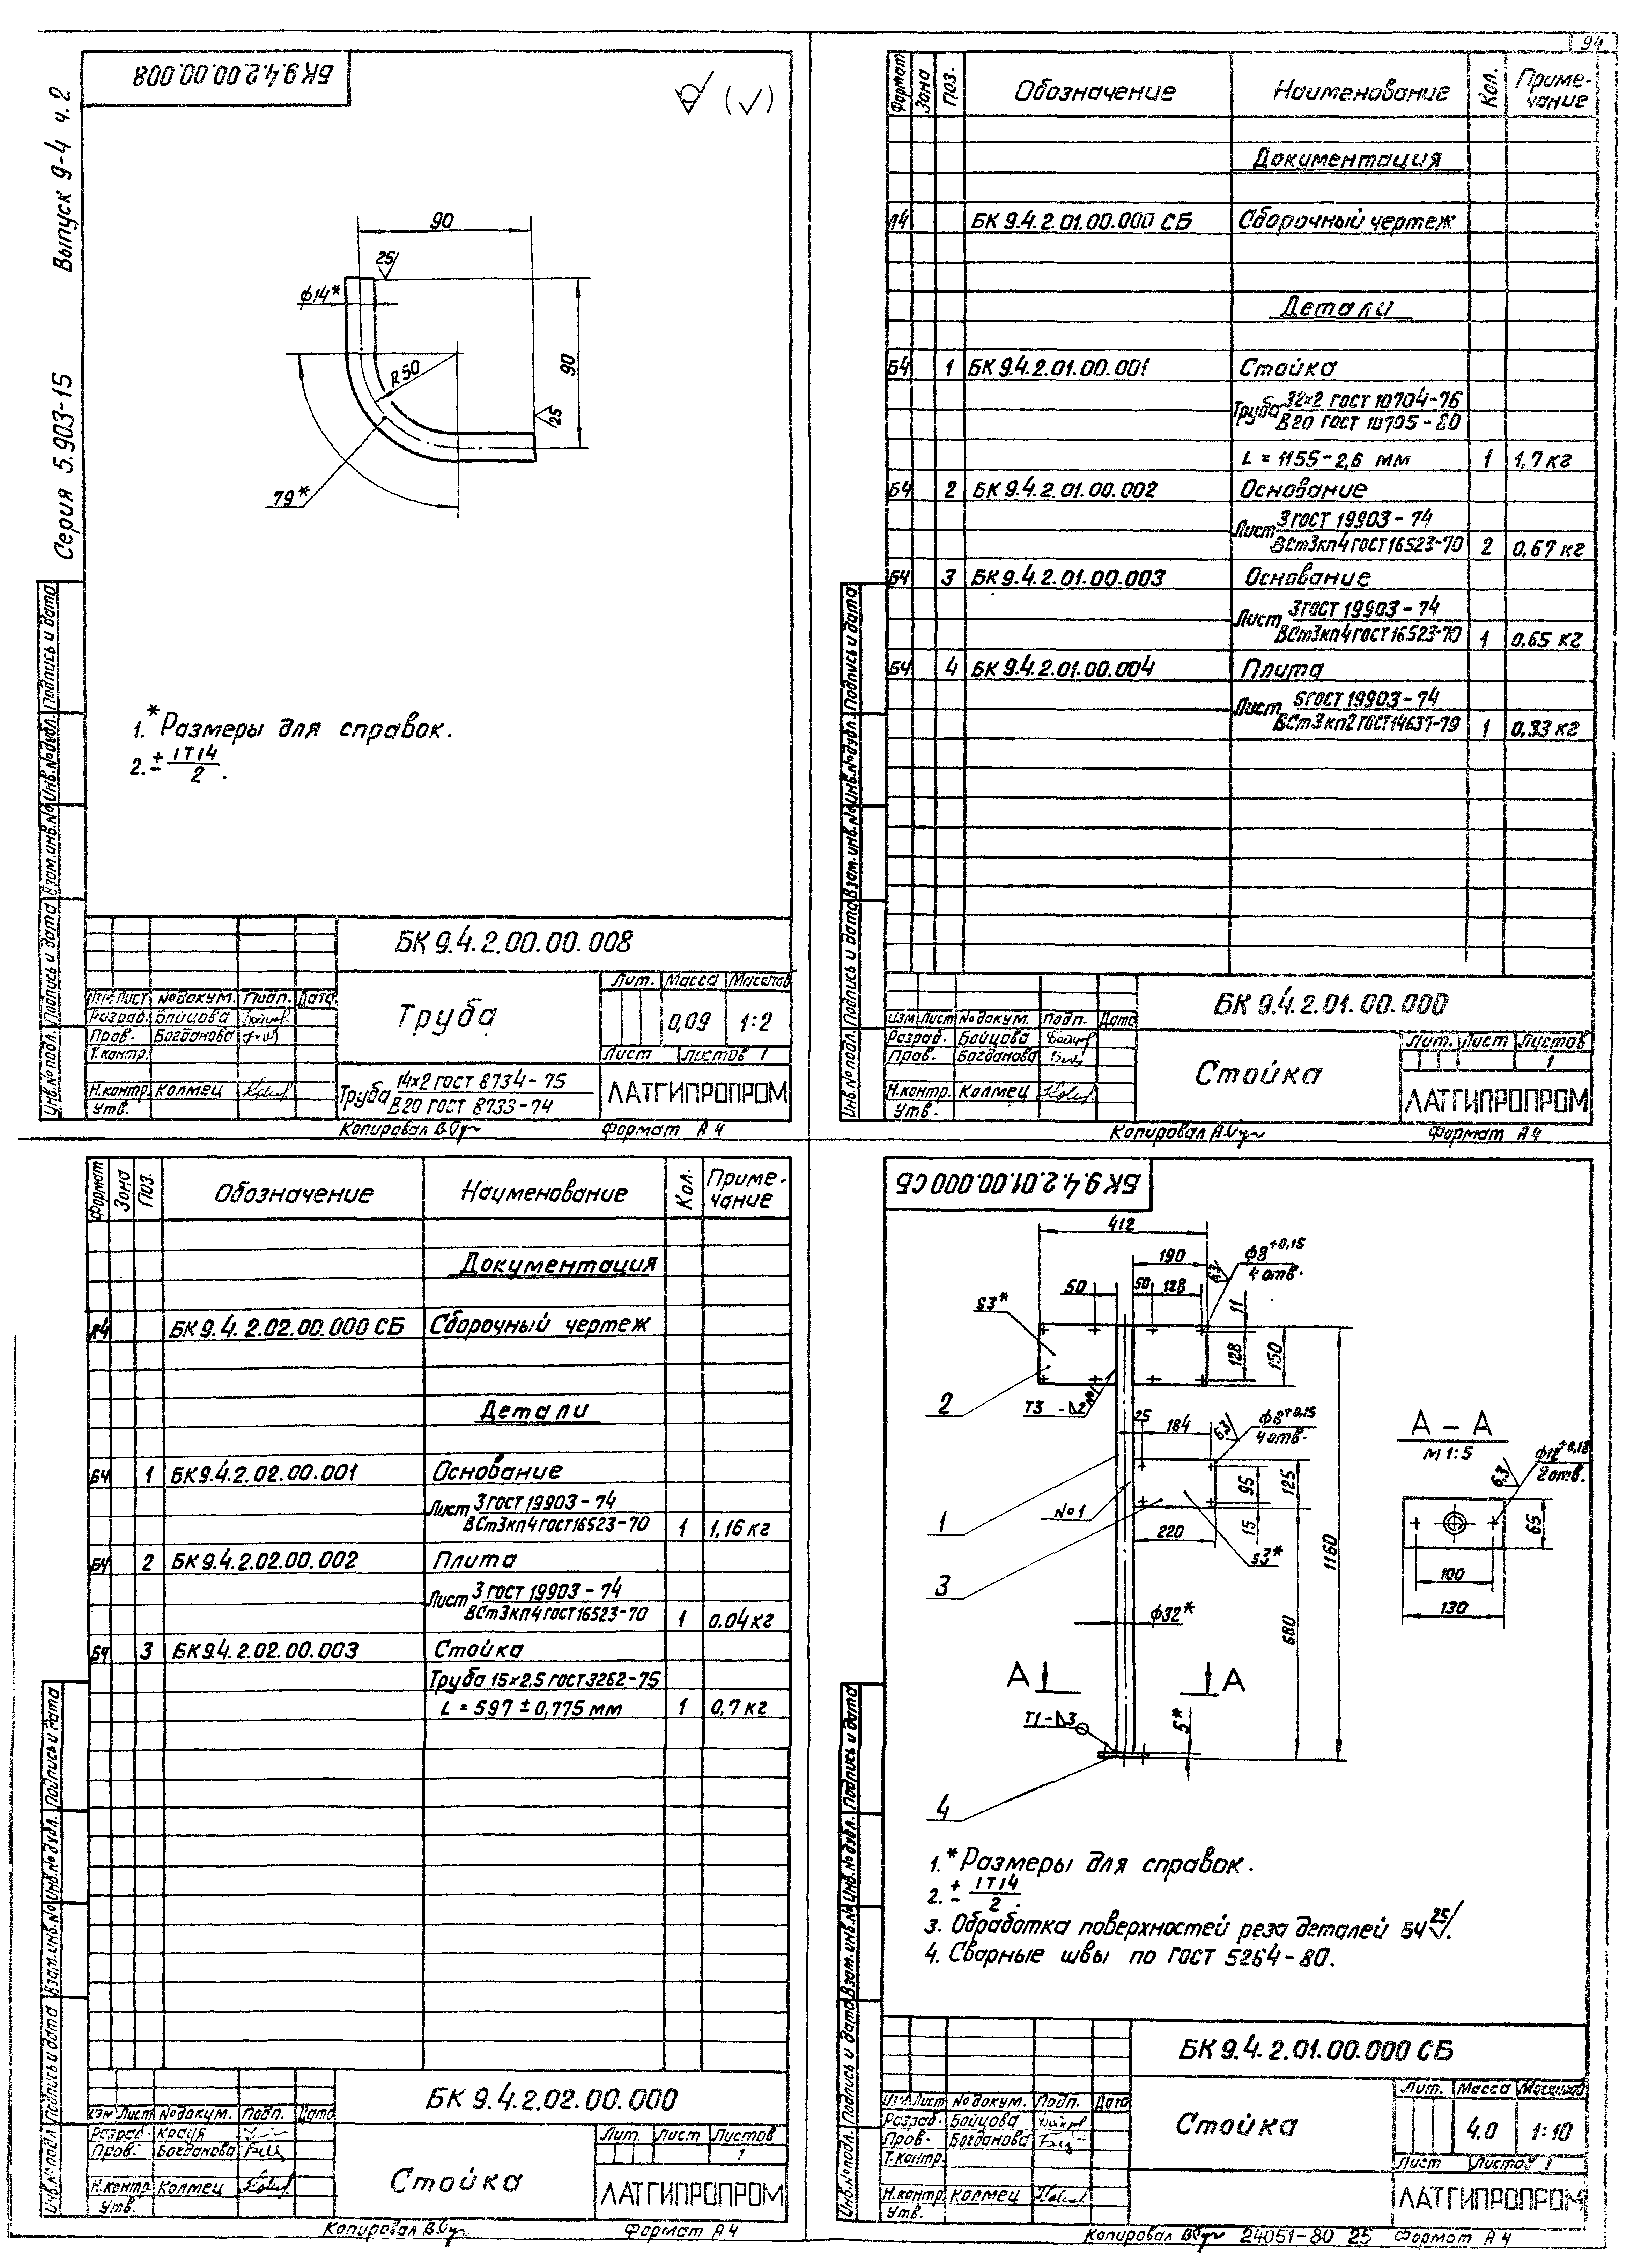 94
Серия 5.903-15 Выпуск 9-4 ч. 2
БК 9.4.2.00.00.008
(√)
90
25
ϕ14*
R50
90
25
79*
1.*Размеры для справок.
2. ± IT14/2.
Инв.№подл. Подпись и дата Взам.инв.№ Инв.№дубл. Подпись и дата
БК 9.4.2.00.00.008
Лит. Масса Масштаб
Изм. Лист №докум. Подп. Дата
Разраб. Бойцова
Пров. Богданова
Т.контр.
Н.контр. Колмец
Утв.
Труба
0,09 1:2
Лист Листов 1
Труба 14×2 ГОСТ 8734-75
В20 ГОСТ 8733-74
ЛАТГИПРОПРОМ
Копировал Формат А4
Формат Зона Поз. Обозначение Наименование Кол. Примечание
Документация
А4 БК 9.4.2.01.00.000 СБ Сборочный чертеж
Детали
Б4 1 БК 9.4.2.01.00.001 Стойка
Труба 32×2 ГОСТ 10704-76
В20 ГОСТ 10705-80
L = 1155-2,6 мм 1 1,7 кг
Б4 2 БК 9.4.2.01.00.002 Основание
Лист 3 ГОСТ 19903-74
ВСт3кп4 ГОСТ 16523-70 2 0,67 кг
Б4 3 БК 9.4.2.01.00.003 Основание
Лист 3 ГОСТ 19903-74
ВСт3кп4 ГОСТ 16523-70 1 0,65 кг
Б4 4 БК 9.4.2.01.00.004 Плита
Лист 5 ГОСТ 19903-74
ВСт3кп2 ГОСТ 14637-79 1 0,33 кг
Инв.№подл. Подпись и дата Взам.инв.№ Инв.№дубл. Подпись и дата
БК 9.4.2.01.00.000
Изм Лист №докум. Подп. Дата
Разраб. Бойцова
Пров. Богданова
Н.контр. Колмец
Утв.
Стойка
Лит. Лист Листов
1
ЛАТГИПРОПРОМ
Копировал Формат А4
Формат Зона Поз. Обозначение Наименование Кол. Примечание
Документация
А4 БК 9.4.2.02.00.000 СБ Сборочный чертеж
Детали
Б4 1 БК 9.4.2.02.00.001 Основание
Лист 3 ГОСТ 19903-74
ВСт3кп4 ГОСТ 16523-70 1 1,16 кг
Б4 2 БК 9.4.2.02.00.002 Плита
Лист 3 ГОСТ 19903-74
ВСт3кп4 ГОСТ 16523-70 1 0.04 кг
Б4 3 БК 9.4.2.02.00.003 Стойка
Труба 15×2,5 ГОСТ 3262-75
L = 597 ± 0,775 мм 1 0,7 кг
Инв.№подл Подпись и дата Взам.инв.№ Инв.№дубл. Подпись и дата
БК 9.4.2.02.00.000
Изм Лист №докум. Подп. Дата
Разраб.
Пров. Богданова
Н.контр. Колмец
Утв.
Стойка
Лит. Лист Листов
1
ЛАТГИПРОПРОМ
Копировал Формат А4
БК 9.4.2.01.00.000 СБ
412
190
ϕ8+0,15
4 отв.
6,3
50 50 128
11
S3*
128
150
2
Т3-△2
№1
25 184
6,3
ϕ8+0,15
4 отв.
95
125
15
1
№1
220
S3*
3
ϕ32*
680
1160
А А
Т1-△3
5*
4
А - А
М 1:5
ϕ12+0,18
2 отв.
6,3
65
100
130
1.*Размеры для справок.
2. ± IT14/2.
3. Обработка поверхностей реза деталей БЧ 25.
4. Сварные швы по ГОСТ 5264-80.
Инв.№подл. Подпись и дата Взам.инв.№ Инв.№дубл. Подпись и дата
БК 9.4.2.01.00.000 СБ
Лит. Масса Масштаб
Изм. Лист №докум. Подп. Дата
Разраб. Бойцова
Пров. Богданова
Т.контр.
Н.контр. Колмец
Утв.
Стойка
4.0 1:10
Лист Листов 1
ЛАТГИПРОПРОМ
Копировал 24051-80 25 Формат А4